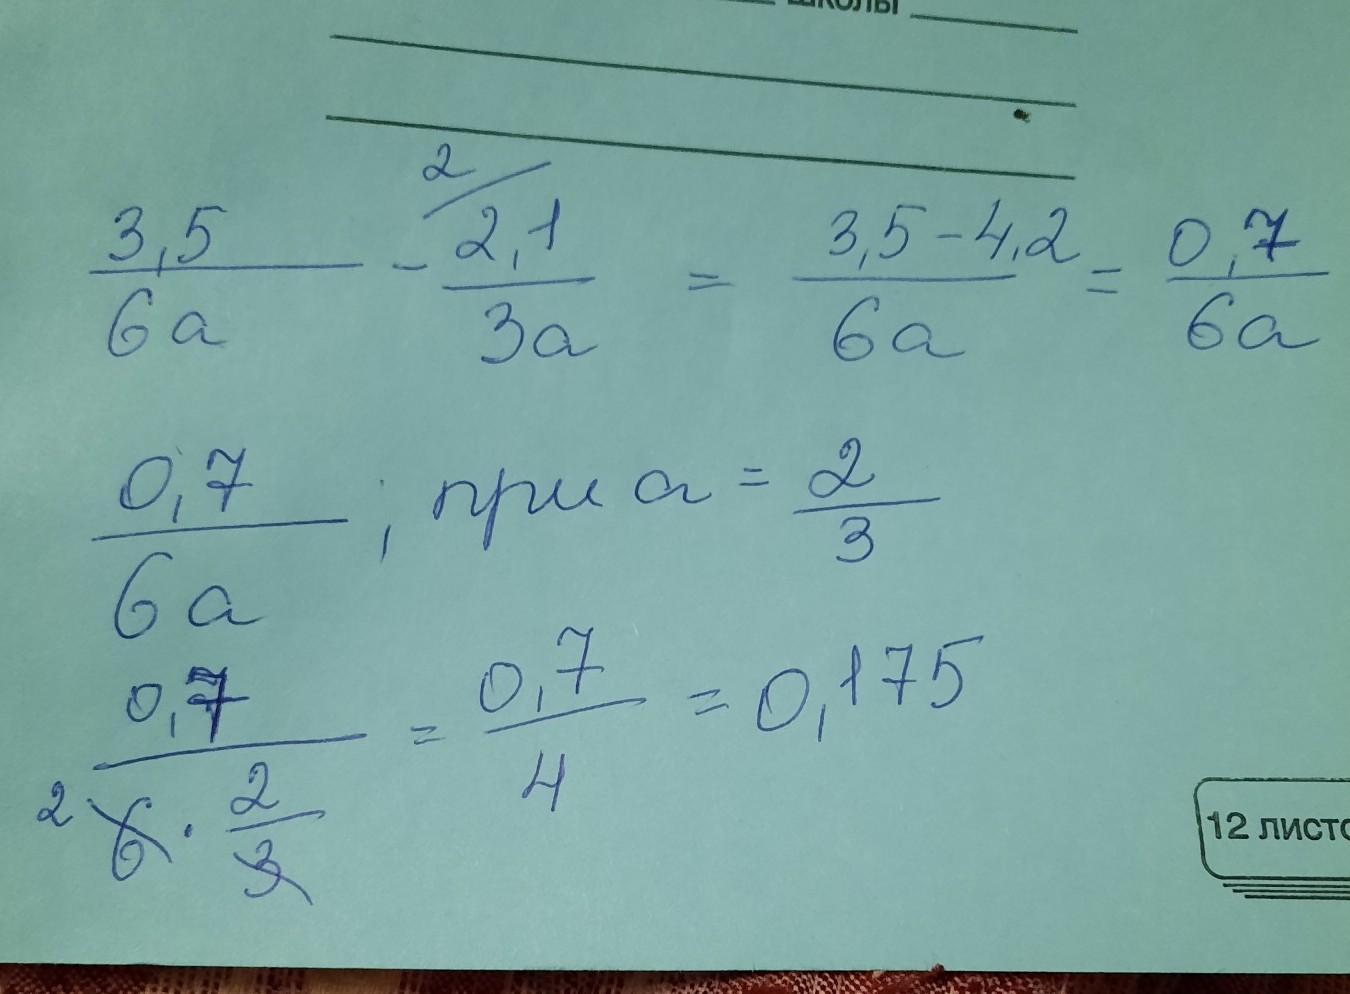 школы
3,5/6а - 2/2,1/3а = 3,5-4,2/6а = 0,7/6а
0,7/6а ; при а = 2/3
0,7/2 6 · 2/3 = 0,7/4 = 0,175
12 листо